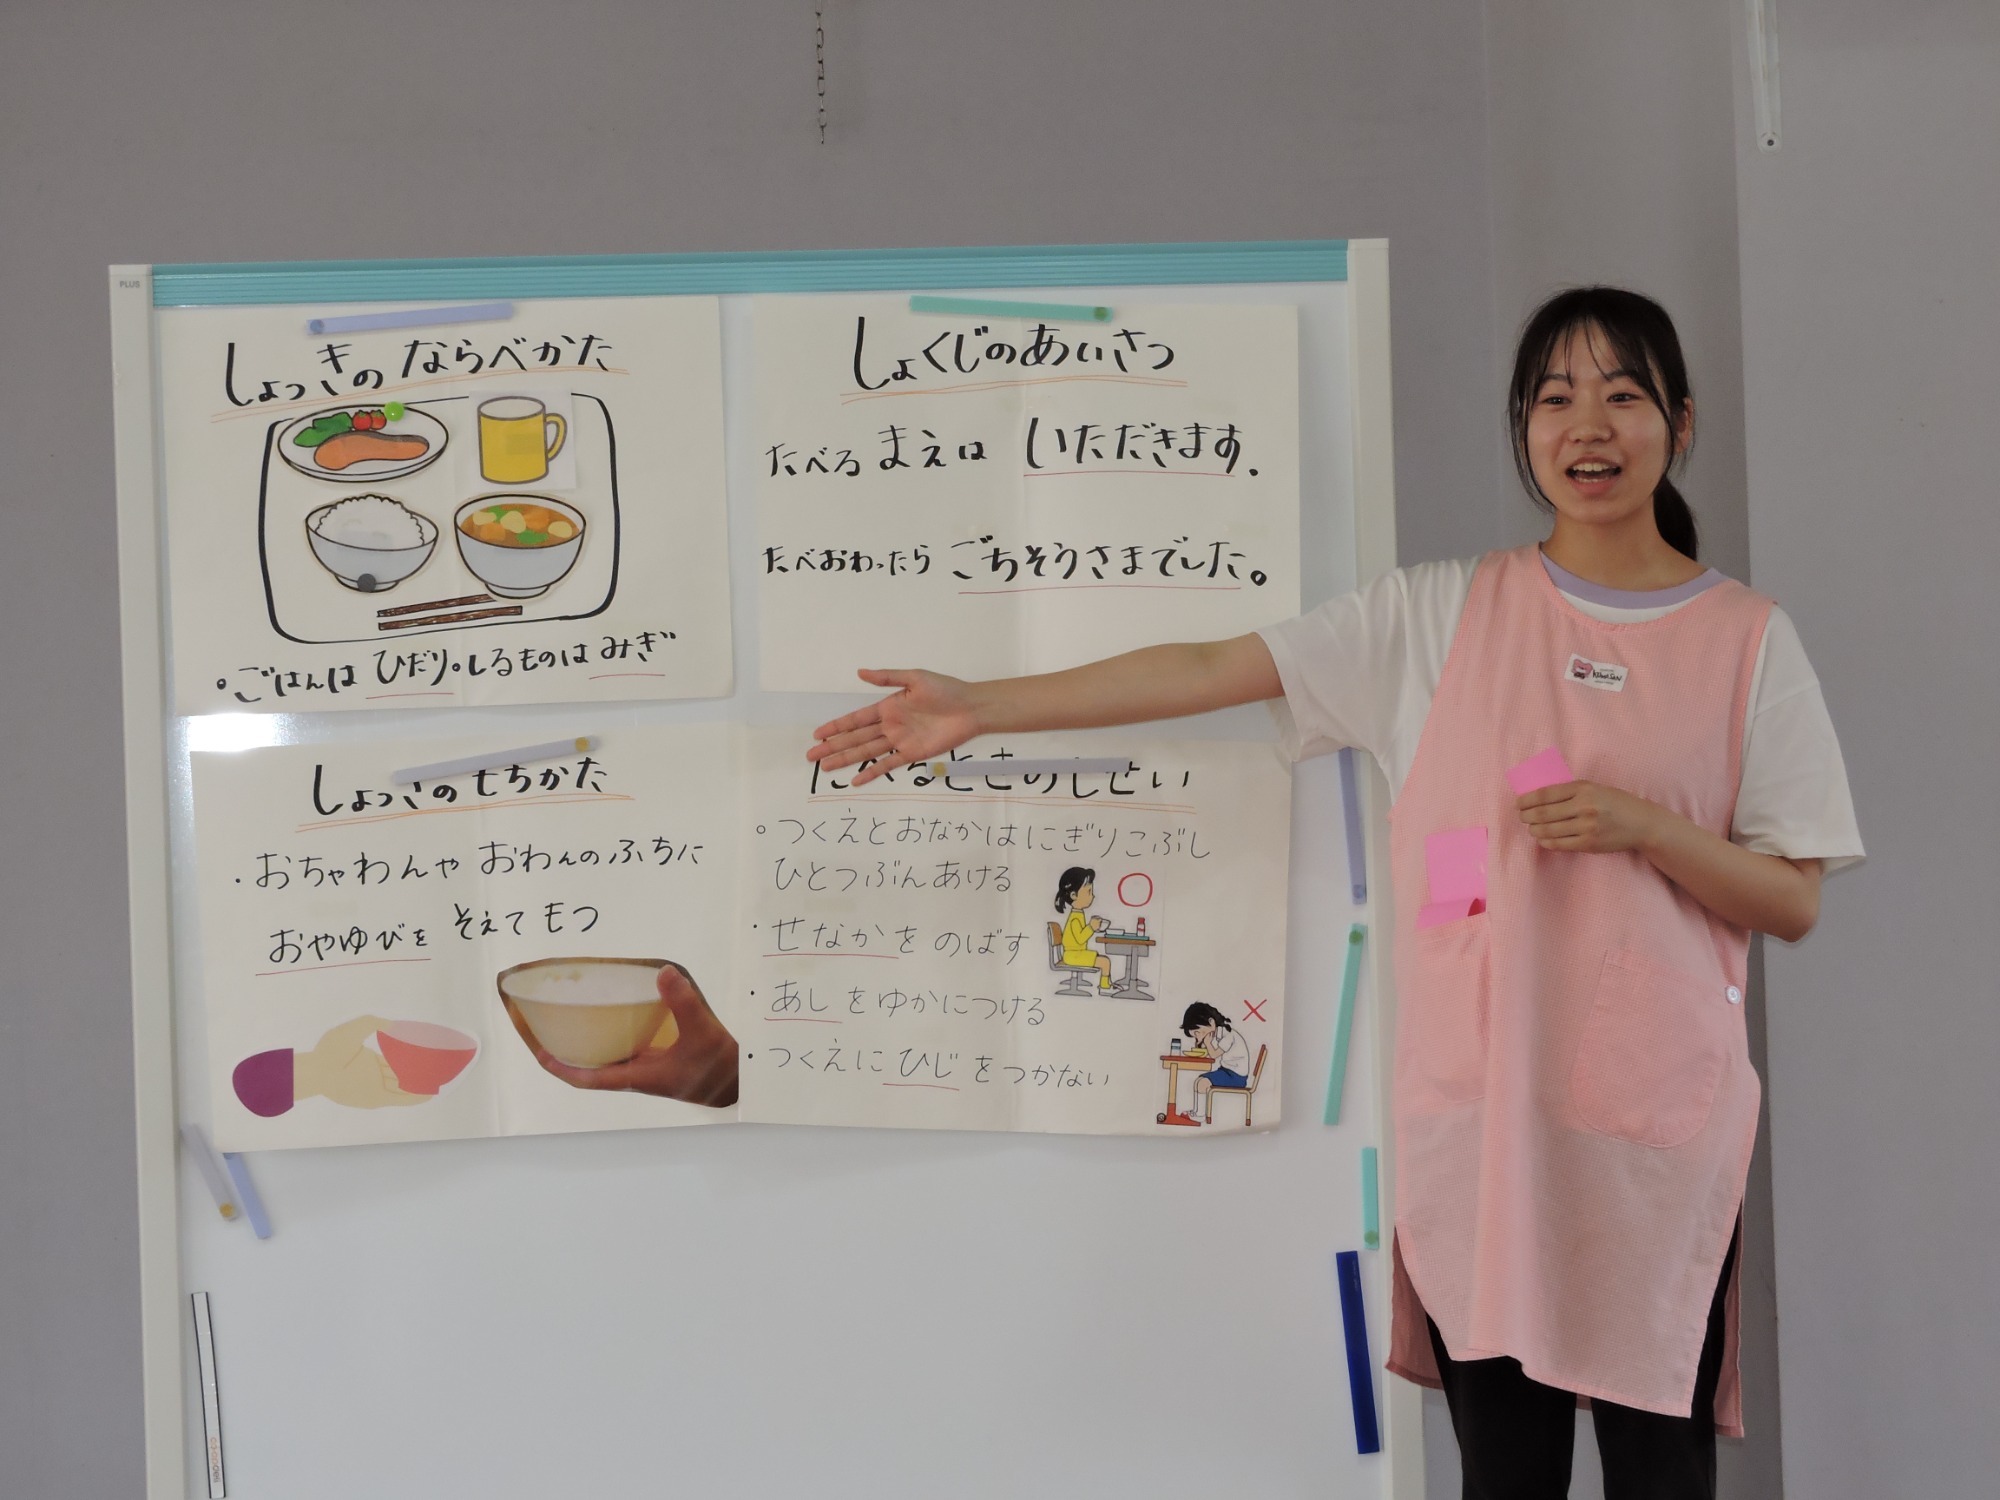 PLUS
しょっきのならべかた
・ごはんはひだり。しるものはみぎ
しょくじのあいさつ
たべるまえは いただきます.
たべおわったら ごちそうさまでした。
しょっきのもちかた
・おちゃわんや おわんのふちに
おやゆびを そえてもつ
たべるときのしせい
○
。つくえとおなかはにぎりこぶし
ひとつぶんあける
・せなかを のばす
・あしをゆかにつける
・つくえに ひじ をつかない
×